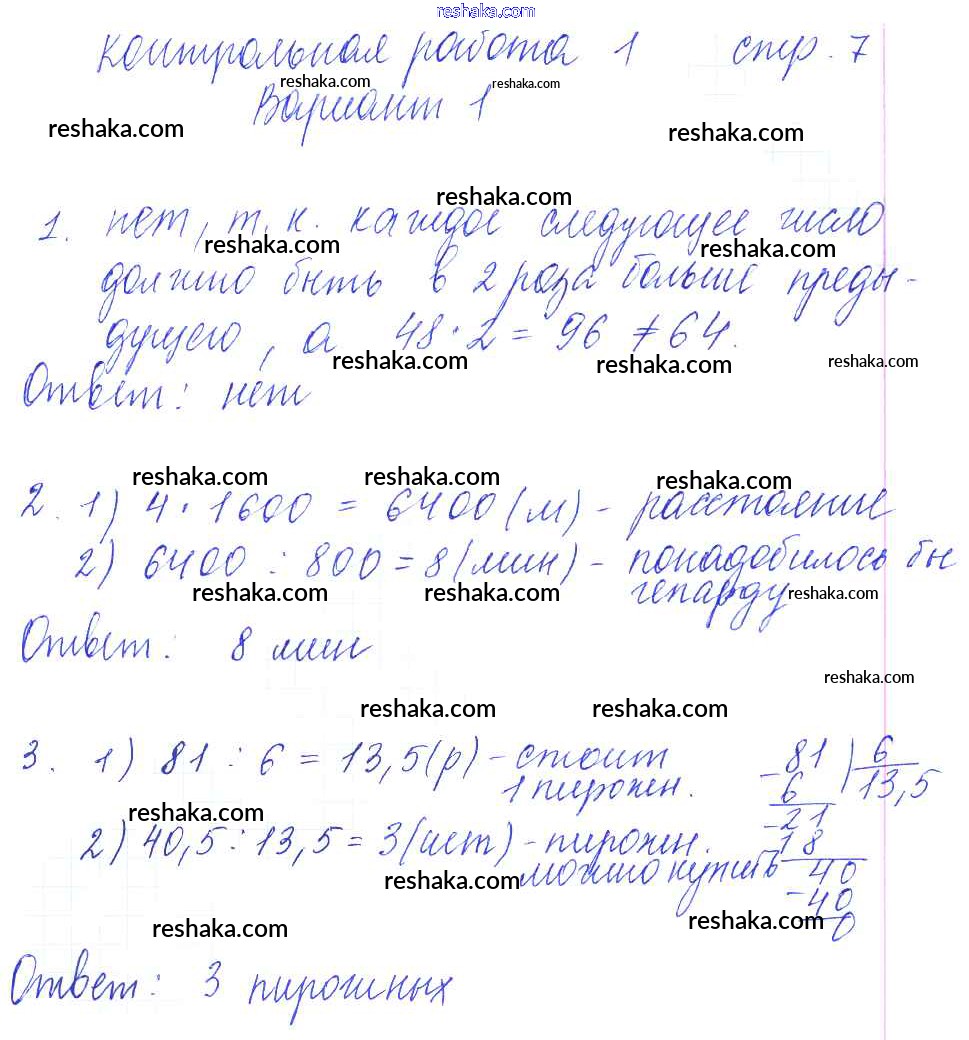 reshaka.com
контрольная работа 1 стр. 7
reshaka.com reshaka.com
Вариант 1
reshaka.com reshaka.com
reshaka.com
1. нет, т. к. каждое следующее число
reshaka.com reshaka.com
должно быть в 2 раза больше преды-
дущего, а 48 · 2 = 96 ≠ 64.
reshaka.com reshaka.com reshaka.com
Ответ: нет
reshaka.com reshaka.com reshaka.com
2. 1) 4 · 1600 = 6400 (м) - расстояние
2) 6400 : 800 = 8 (мин) - понадобилось бы
гепарду
reshaka.com reshaka.com reshaka.com
Ответ: 8 мин
reshaka.com
reshaka.com reshaka.com
3. 1) 81 : 6 = 13,5 (р) - стоит
1 пирожен.
81 6
6 13,5
21
18
40
40
0
reshaka.com
2) 40,5 : 13,5 = 3 (шт) - пирожен.
можно купить
reshaka.com
reshaka.com reshaka.com
Ответ: 3 пирожных